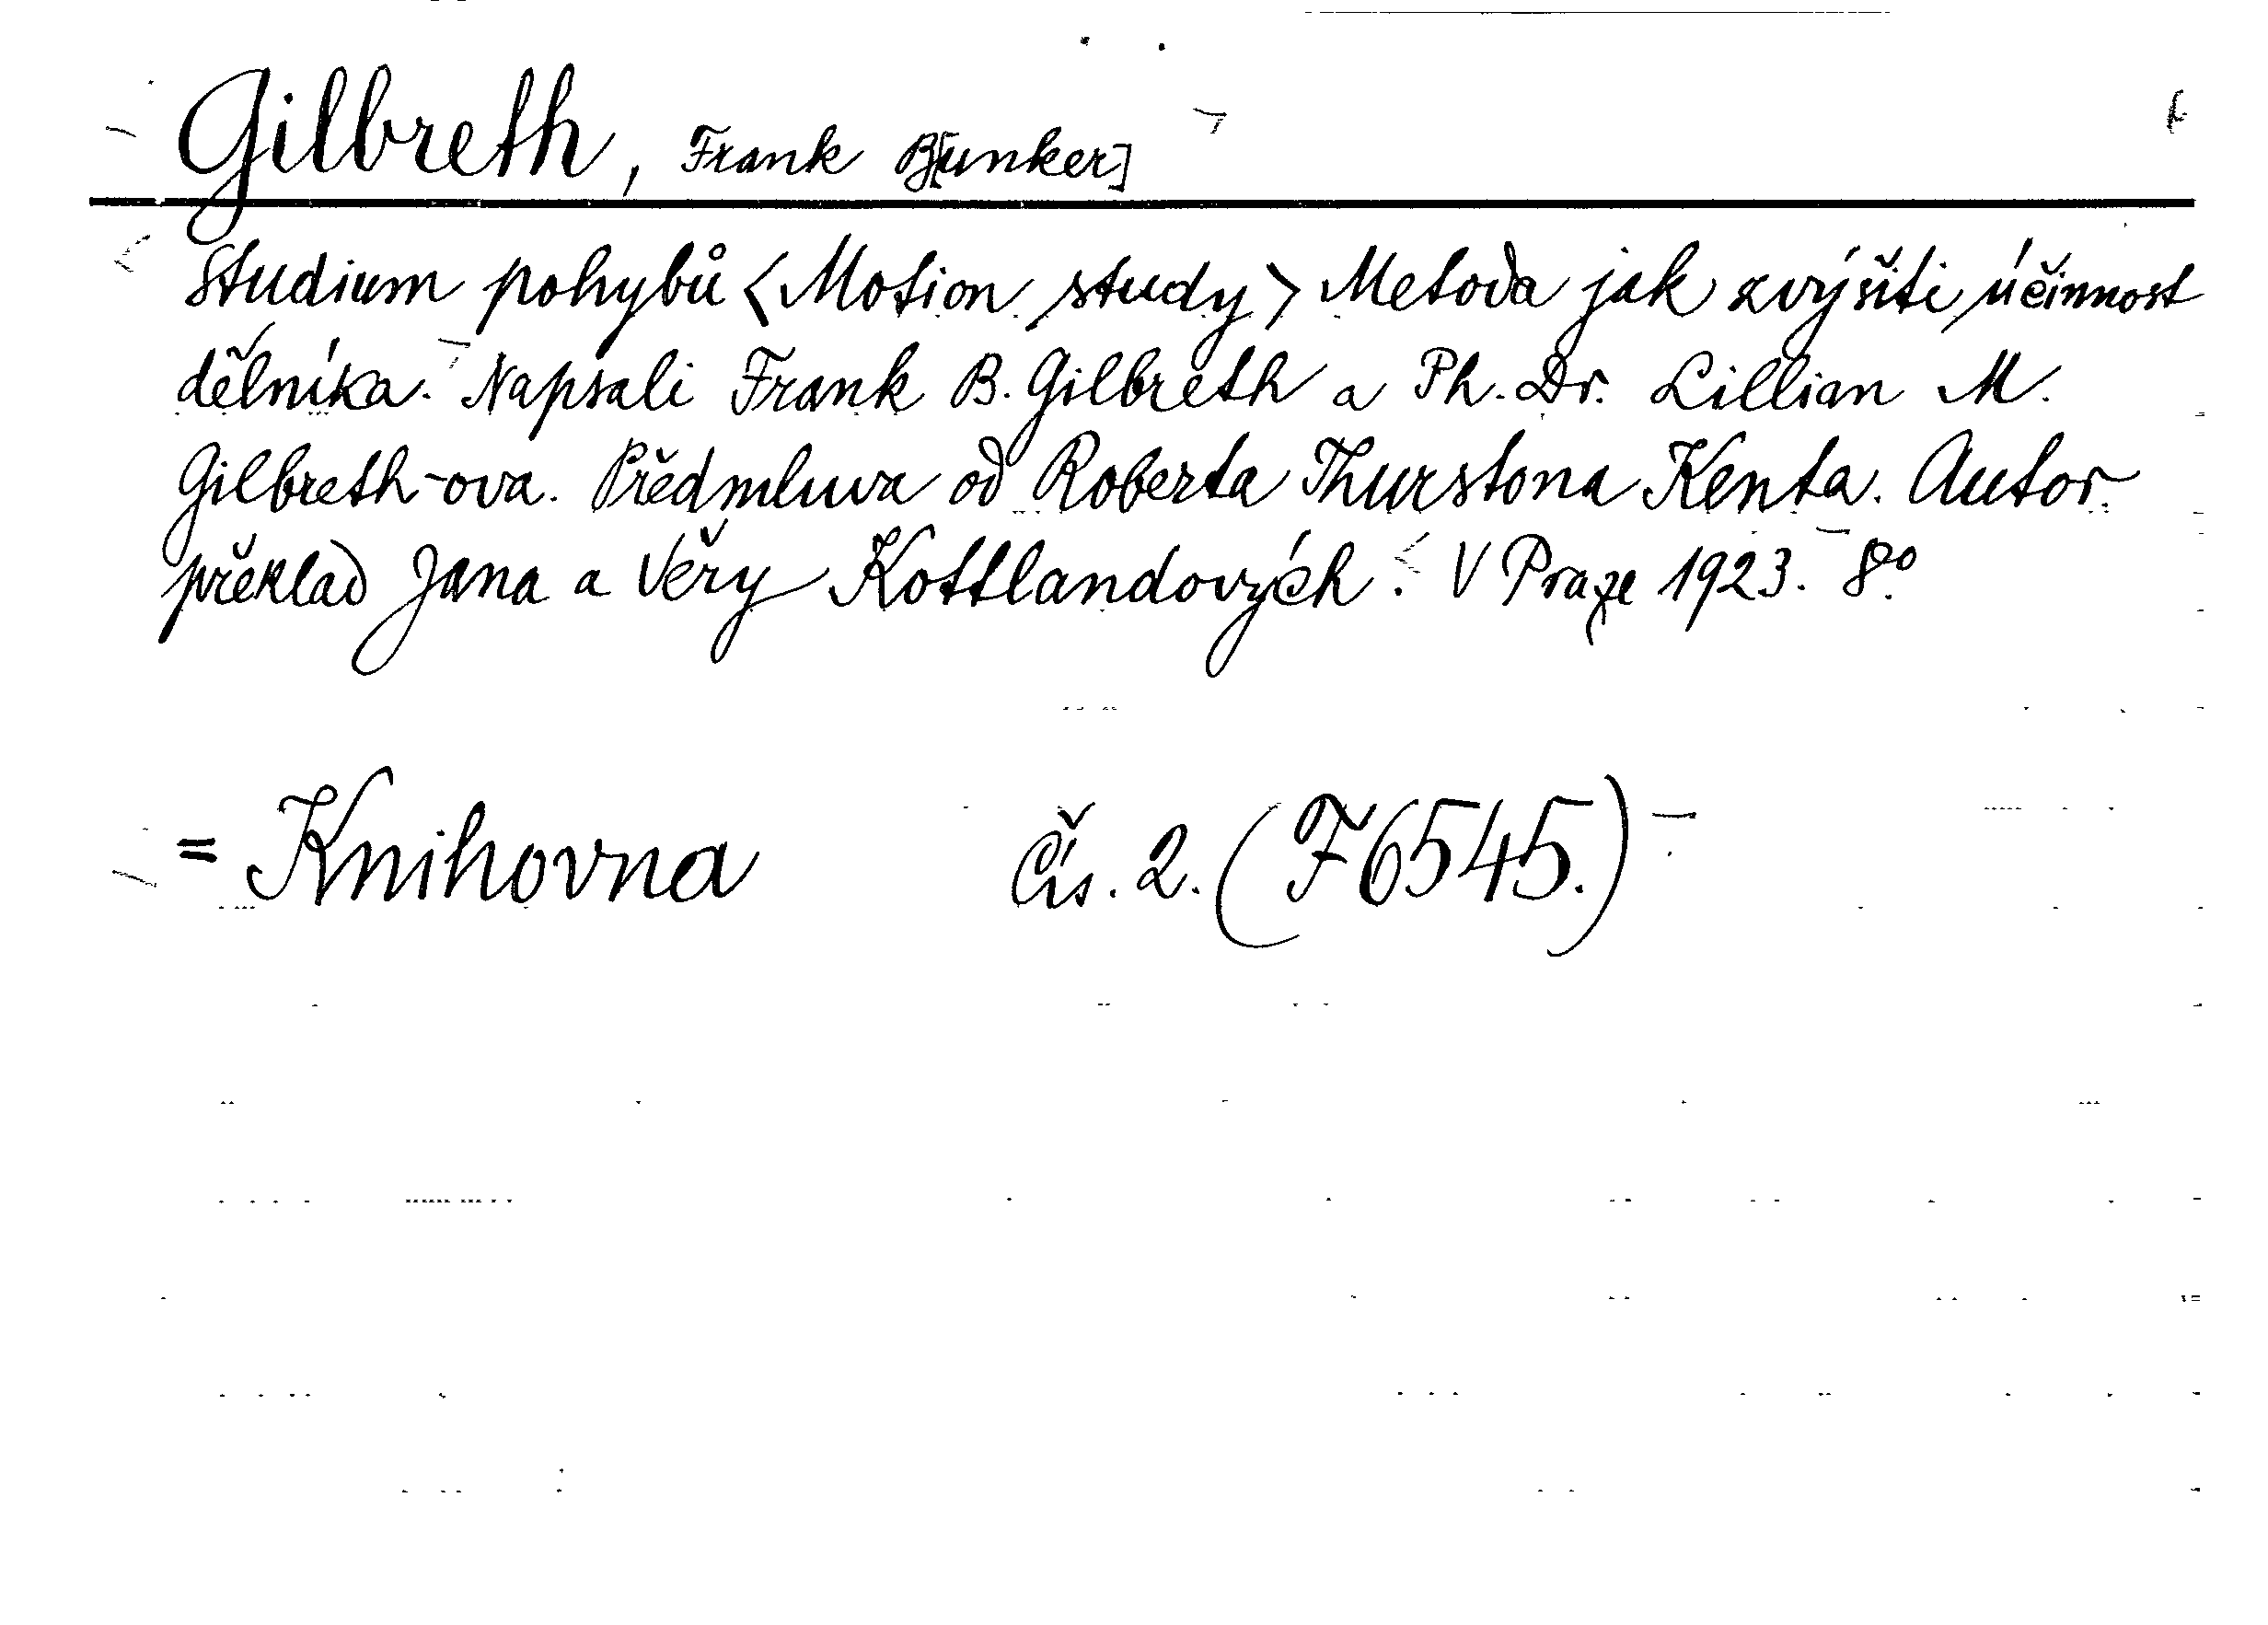 Gilbreth, Frank B[unker]
Studium pohybů <Motion study> Metoda jak zvýšiti účinnost
dělníka. Napsali Frank B. Gilbreth a Ph. Dr. Lillian M.
Gilbreth-ova. Předmluva od Roberta Thurstona Kenta. Autor.
překlad Jana a Věry Kottlandových. V Praze 1923. 8°.
= Knihovna čís. 2. (F 6545.)